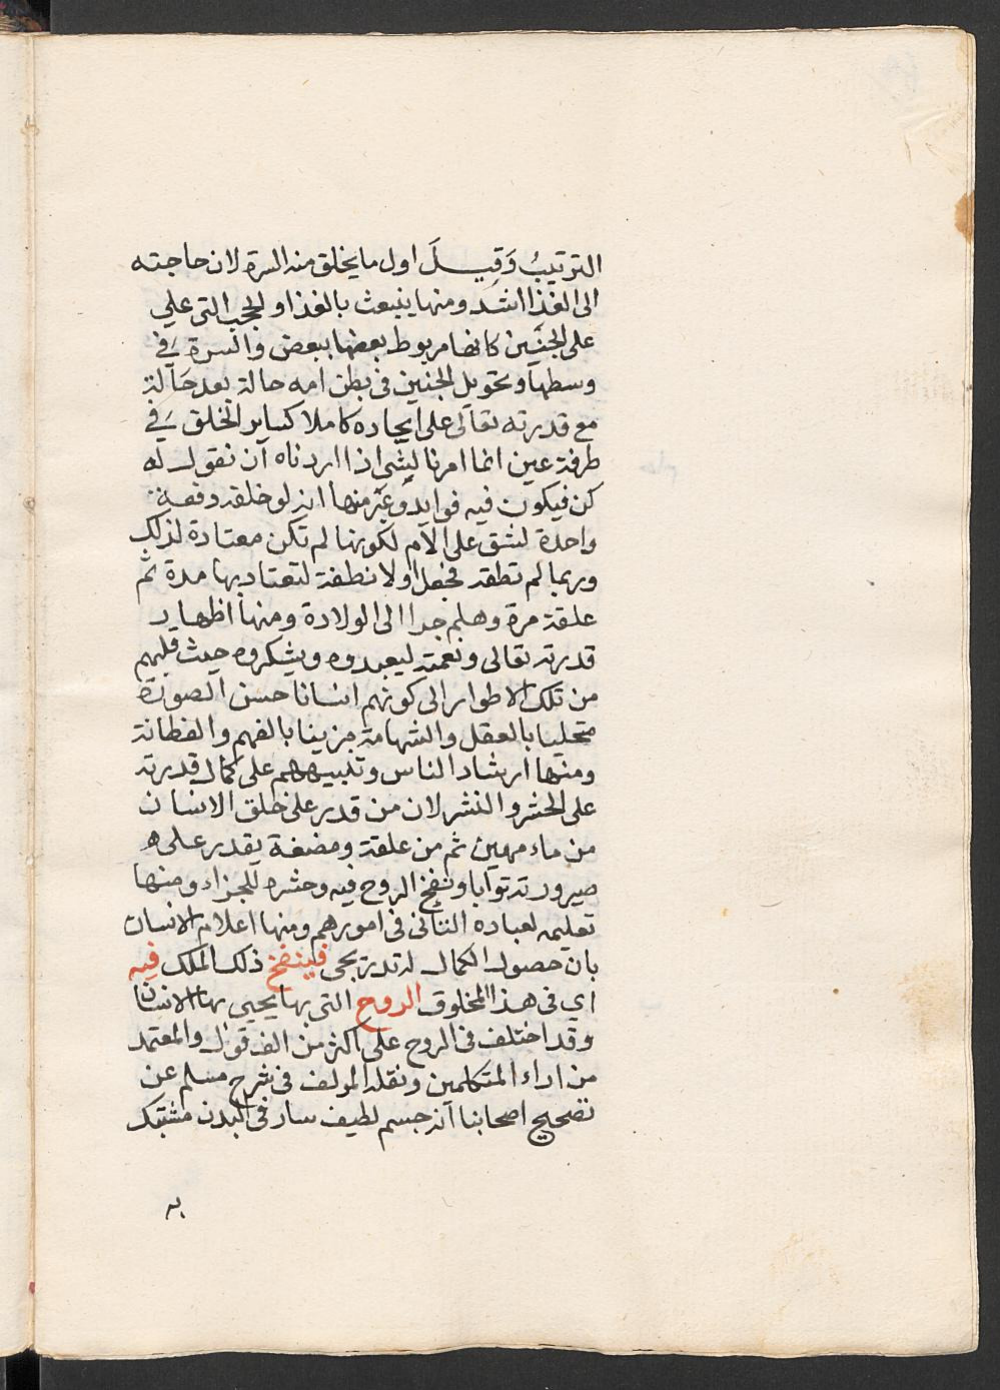 الترتيبُ وَقِيلَ اول ما يخلق منه السرة لان حاجته
الى الغذا اشد ومنها ينبعث بالغذا والحجب التي علي
على الجنين كانها مربوط بعضها ببعض والسرة في
وسطها وتحويل الجنين في بطن امه حالة بعد حالة
مع قدرته تعالى على ايجاده كاملا كساير الخلق في
طرفة عين انما امرنا لشى اذا اردناه ان نقول له
كن فيكون فيه فوايد وعبر منها انه لو خلقه دفعة
واحدة لشق على الام لكونها لم تكن معتادة لذلك
وربما لم تطقه فجعل اولا نطفة لتعتاد بها مدة ثم
علقة مرة وهلم جرا الى الولادة ومنها اظهار
قدرته تعالى ونعمته ليعبدوه ويشكروه حيث قلبهم
من تلك الاطوار الى كونهم انسانا حسن الصورة
متحليا بالعقل والشهامة مزينا بالفهم والفطانة
ومنها ارشاد الناس وتنبيههم على كمال قدرته
على الحشر والنشر لان من قدر على خلق الانسان
من ماء مهين ثم من علقة ومضغة يقدر على
صيرورته ترابا ونفخ الروح فيه وحشره للجزاء ومنها
تعليمه لعباده التانى فى امورهم ومنها اعلام الانسان
بان حصول الكمال له تدريجى فينفخ ذلك الملك فيه
اي فى هذا المخلوق الروح التى بها يحيى بها الانسان
وقد اختلف فى الروح على اكثر من الف قول والمعتمد
من اراء المتكلمين ونقله المولف فى شرح مسلم عن
تصحيح اصحابنا انه جسم لطيف سار فى البدن مشتبك
به